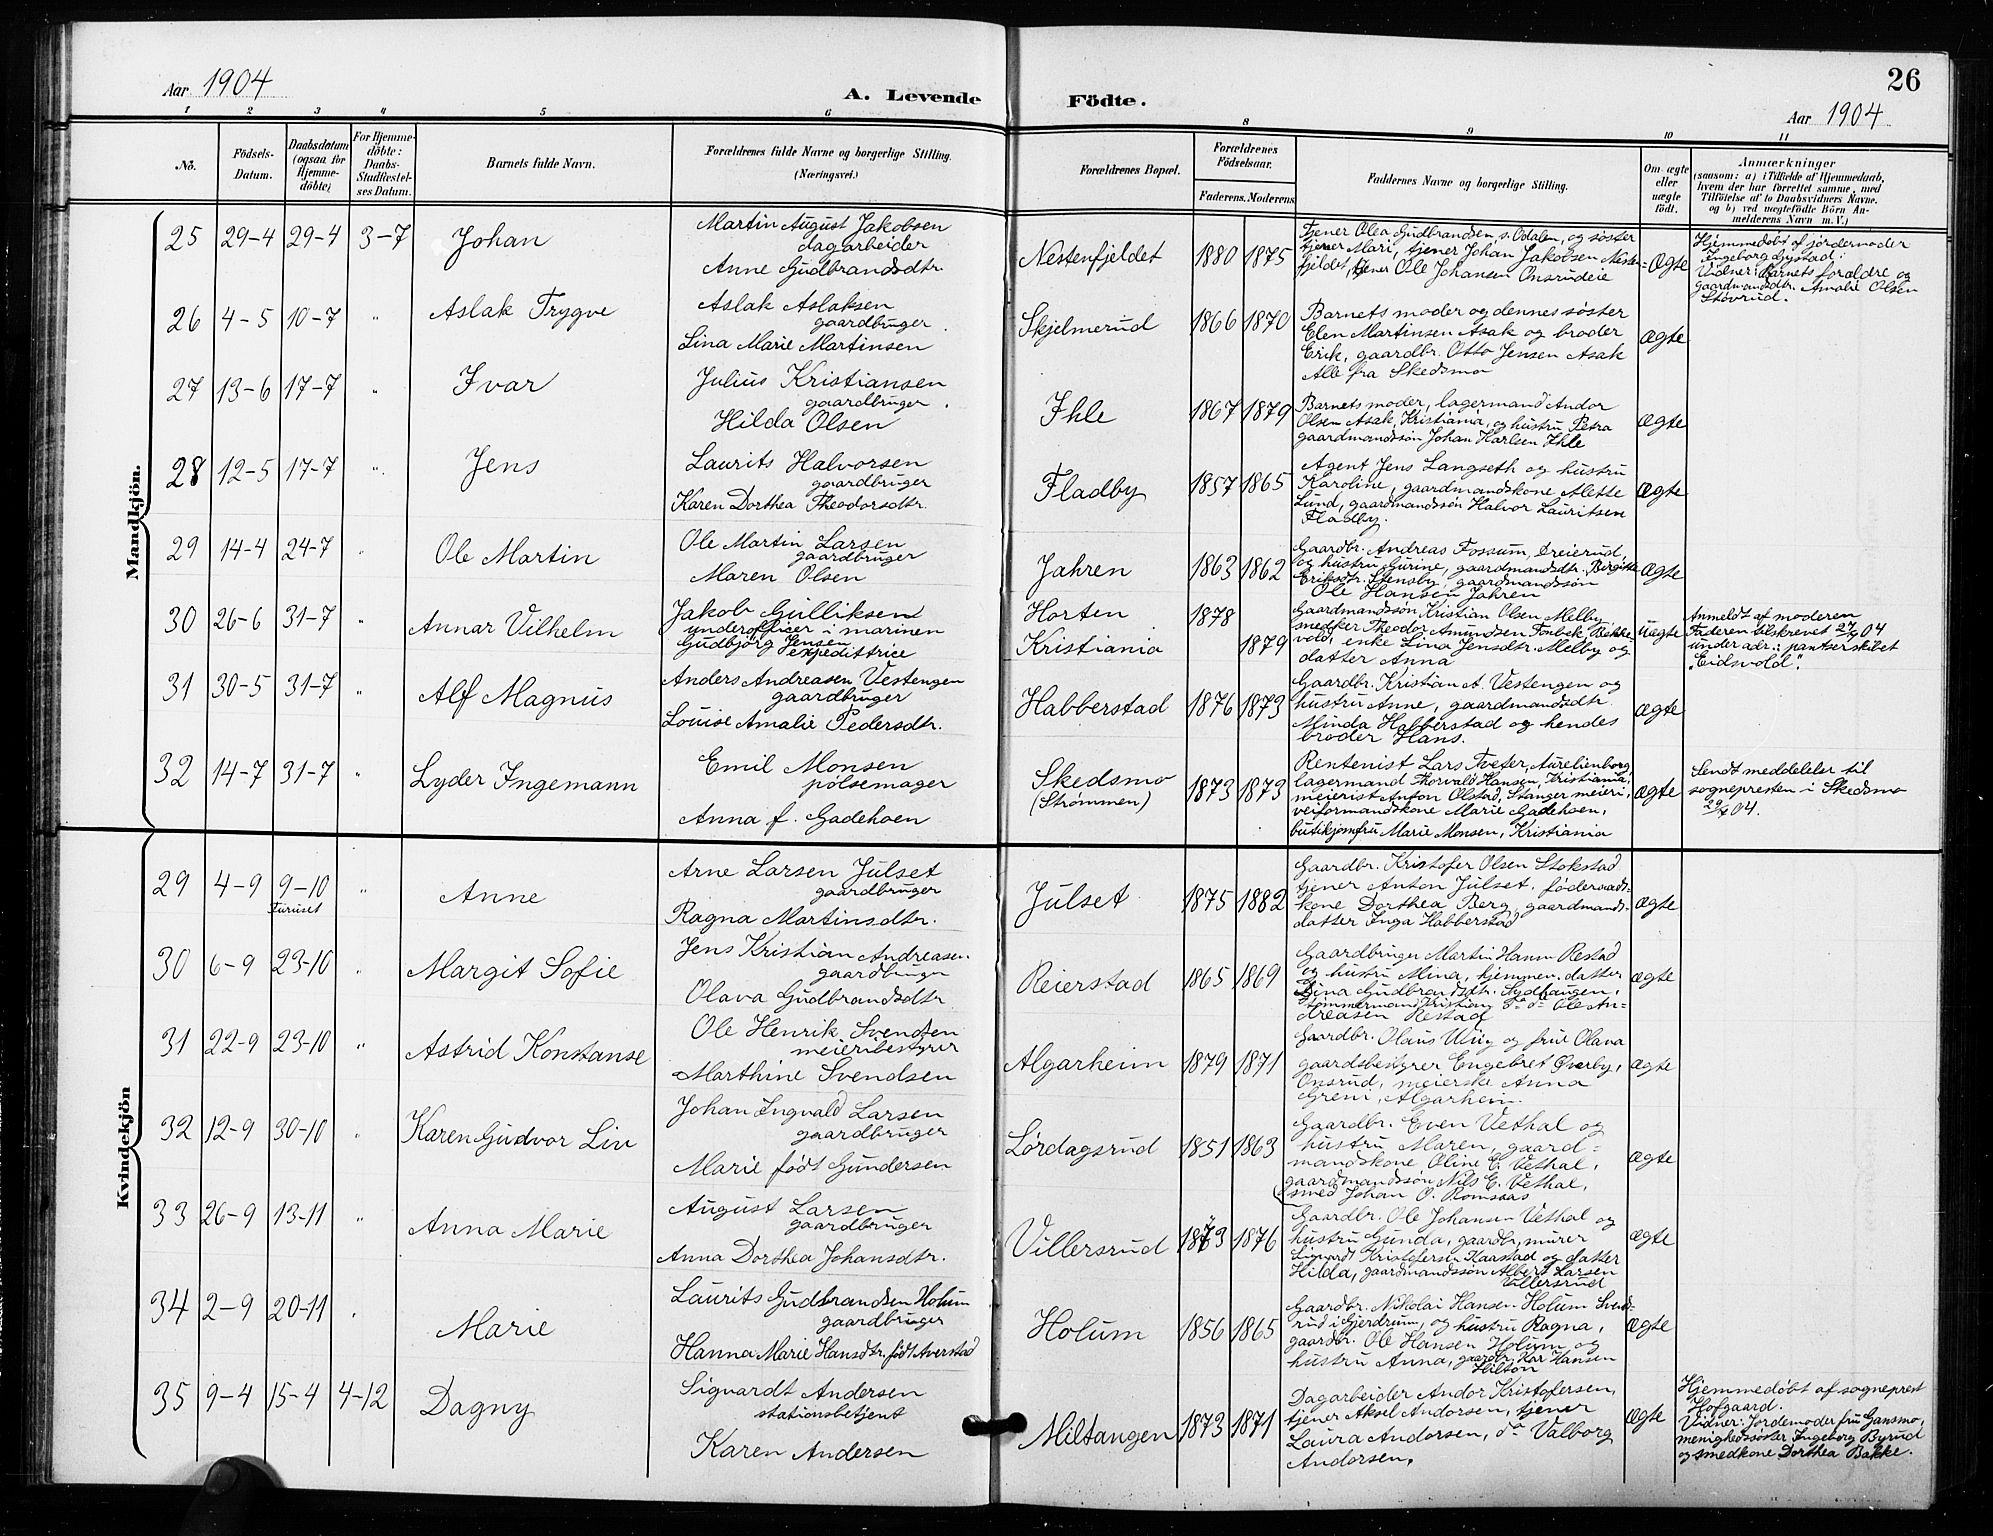 26
Aar 1904
A. Levende Födte.
Aar 1904
1 2 3 4 5 6 8 9 10 11
No.
Födsels-Datum.
Daabsdatum (ogsaa for Hjemme-döbte)
For Hjemme-döbte: Daabs-Stadfæstel-ses Datum.
Barnets fulde Navn.
Forældrenes fulde Navne og borgerlige Stilling. (Næringsvei.)
Forældrenes Bopæl.
Forældrenes Födselsaar.
Faderens. Moderens.
Faddernes Navne og borgerlige Stilling.
Om ægte eller uægte födt.
Anmærkninger
(saasom: a) i Tilfælde af Hjemmedaab,
hvem der har forrettet samme, med
Tilföielse af to Daabsvidners Navne.
og b) ved uægtefödte Börn An-
melderens Navn m. V.)
Mandkjön.
25 29-4 29-4 3-7 Johan
Martin August Jakobsen
dagarbeider
Anne Gudbrandsdtr.
Nestenfjeldet 1880 1875
Tjener Olea Gudbrandsen, s. Odalen, og søster
tjener Mari, tjener Johan Jakobsen Nesten-
fjeldet, tjener Ole Johansen Onsrudeie
Ægte
Hjemmedøbt af jordemoder
Ingeborg Lystad:
Vidner: Barnets forældre og
gaardmandsdtr. Amalie Olsen
Stovrud.
26 4-5 10-7 " Aslak Trygve
Aslak Aslaksen
gaardbruger.
Lina Marie Martinsen
Skjelmerud 1866 1870
Barnets moder og dennes søster
Elen Martinsen Asak og broder
Erik, gaardbr. Otto Jensen Asak
Alle fra Skedsmo
Ægte
27 13-6 17-7 " Ivar
Julius Kristiansen
gaardbruger.
Hilda Olsen
Ihle 1867 1879
Barnets moder, lagermand Andor
Olsen Asak, Kristiania, og hustru Petra
gaardmandssøn Johan Karlsen Ihle
Ægte
28 12-5 17-7 " Jens
Laurits Halvorsen
gaardbruger
Karen Dorthea Theodorsdtr.
Fladby 1857 1865
Agent Jens Langseth og hustru
Karoline, gaardmandskone Alette
Lund, gaardmandssøn Halvor Lauritsen
Fladby.
Ægte
29 14-4 24-7 " Ole Martin
Ole Martin Larsen
gaardbruger
Maren Olsen
Jahren 1863 1862
Gaardbr. Andreas Fossum, Dreierud,
og hustru Gurine, gaardmandsdtr. Bergitte
Eriksdtr. Stensby, gaardmandssøn
Ole Hansen Jahren
Ægte
30 26-6 31-7 " Annar Vilhelm
Jakob Gulliksen
underofficer i marinen
Gudbjörg Jensen
expeditrice
Horten 1878
Kristiania 1879
Gaardmandssøn, Kristian Olsen Melby,
Theodor Amundsen Fonbek, Bække-
vold, enke Lina Jensdtr. Melby og
datter Anna
uægte
Anmeldt af moderen
Faderen tilskrevet 27/7 04
under adr.: pantserskibet
"Eidsvold".
31 30-5 31-7 " Alf Magnus
Anders Andreasen Vestengen
gaardbruger
Louise Amalie Pedersdtr.
Habberstad 1876 1873
Gaardbr. Kristian A. Vestengen og
hustru Anne, gaardmandsdtr
Minda Habberstad og hendes
broder Hans.
Ægte
32 14-7 31-7 " Lyder Ingemann
Emil Monsen
pölsemager
Anna f. Gadehoen
Skedsmo
(Strømmen)
1873 1873
Rentenist Lars Tveter, Aurelienborg,
lagermand Thorvald Hansen, Kristiania,
meierist Anton Olstad, Stanger meieri,
veiformandskone Marie Gadehoen,
butikjomfru Marie Monsen, Kristiania
Ægte
Sendt meddelelse til
sognepresten i Skedsmo
29/7 04.
Kvindekjön
29 4-9 9-10 " Anne
Furuset
Arne Larsen Julset
gaardbruger
Ragna Martinsdtr.
Julset 1875 1882
Gaardbr. Kristofer Olsen Stokstad
tjener Anton Julset, føderaads-
kone Dorthea Berg, gaardmands-
datter Inga Habberstad
Ægte
30 6-9 23-10 " Margit Sofie
Jens Kristian Andreasen
gaardbruger
Olava Gudbrandsdtr.
Reierstad 1865 1869
Gaardbruger Martin Hansen Restad
og hustru Mina, hjemmev. datter
Lina Gudbrandsdtr. Sydhaugen,
tømmermand Kristian do do Ole An-
dreasen Restad
Ægte
31 22-9 23-10 " Astrid Konstanse
Ole Henrik Svendsen
meieribestyrer
Marthine Svendsen
Algarheim 1879 1871
Gaardbr. Olaus Wiig og frue Olava
gaardsbestyrer Engebret Overby,
Onsrud, meierske Anna
Greni, Algarheim.
Ægte
32 12-9 30-10 " Karen Gudvor Liv
Johan Ingvald Larsen
gaardbruger
Marie født Gundersen
Lørdagsrud 1851 1863
Gaardbr. Even Vethal og
hustru Maren, gaard-
mandskone Oline E. Vethal,
gaardmandssøn Nils E. Vethal,
smed Johan O. Romsaas
Ægte
33 26-9 13-11 " Anna Marie
August Larsen
gaardbruger
Anna Dorthea Johansdtr.
Villersrud 1873 1876
Gaardbr. Ole Johansen Vethal og
hustru Gunda, gaardbr., murer
Sigvardt Kristofersen Kaastad og datter
Hilda, gaardmandssøn Albert Larsen
Villersrud
Ægte
34 2-9 20-11 " Marie
Laurits Gudbrandsen Holum
gaardbruger
Hanna Marie Hansdtr. født Averstad
Holum 1856 1865
Gaardbr. Nikolai Hansen Holum Svend-
rud i Gjerdrum, og hustru Ragna,
gaardbr. Ole Hansen Holum og
hustru Anna, gaardbr. Kar Hansen
Hilton
Ægte
35 9-4 15-4 4-12 Dagny
Sigvardt Andersen
stationsbetjent
Karen Andersen
Miltangen 1873 1871
Dagarbeider Andor Kristofersen,
tjener Aksel Andorsen, tjener
Laura Andorsen, do Valborg
Andorsen.
Ægte
Hjemmedøbt af sogneprest
Hofgaard.
Vidner: Jordemoder fru Gansmo,
menighedssøster Ingeborg Byrud
og smedkone Dorthea Bakke.